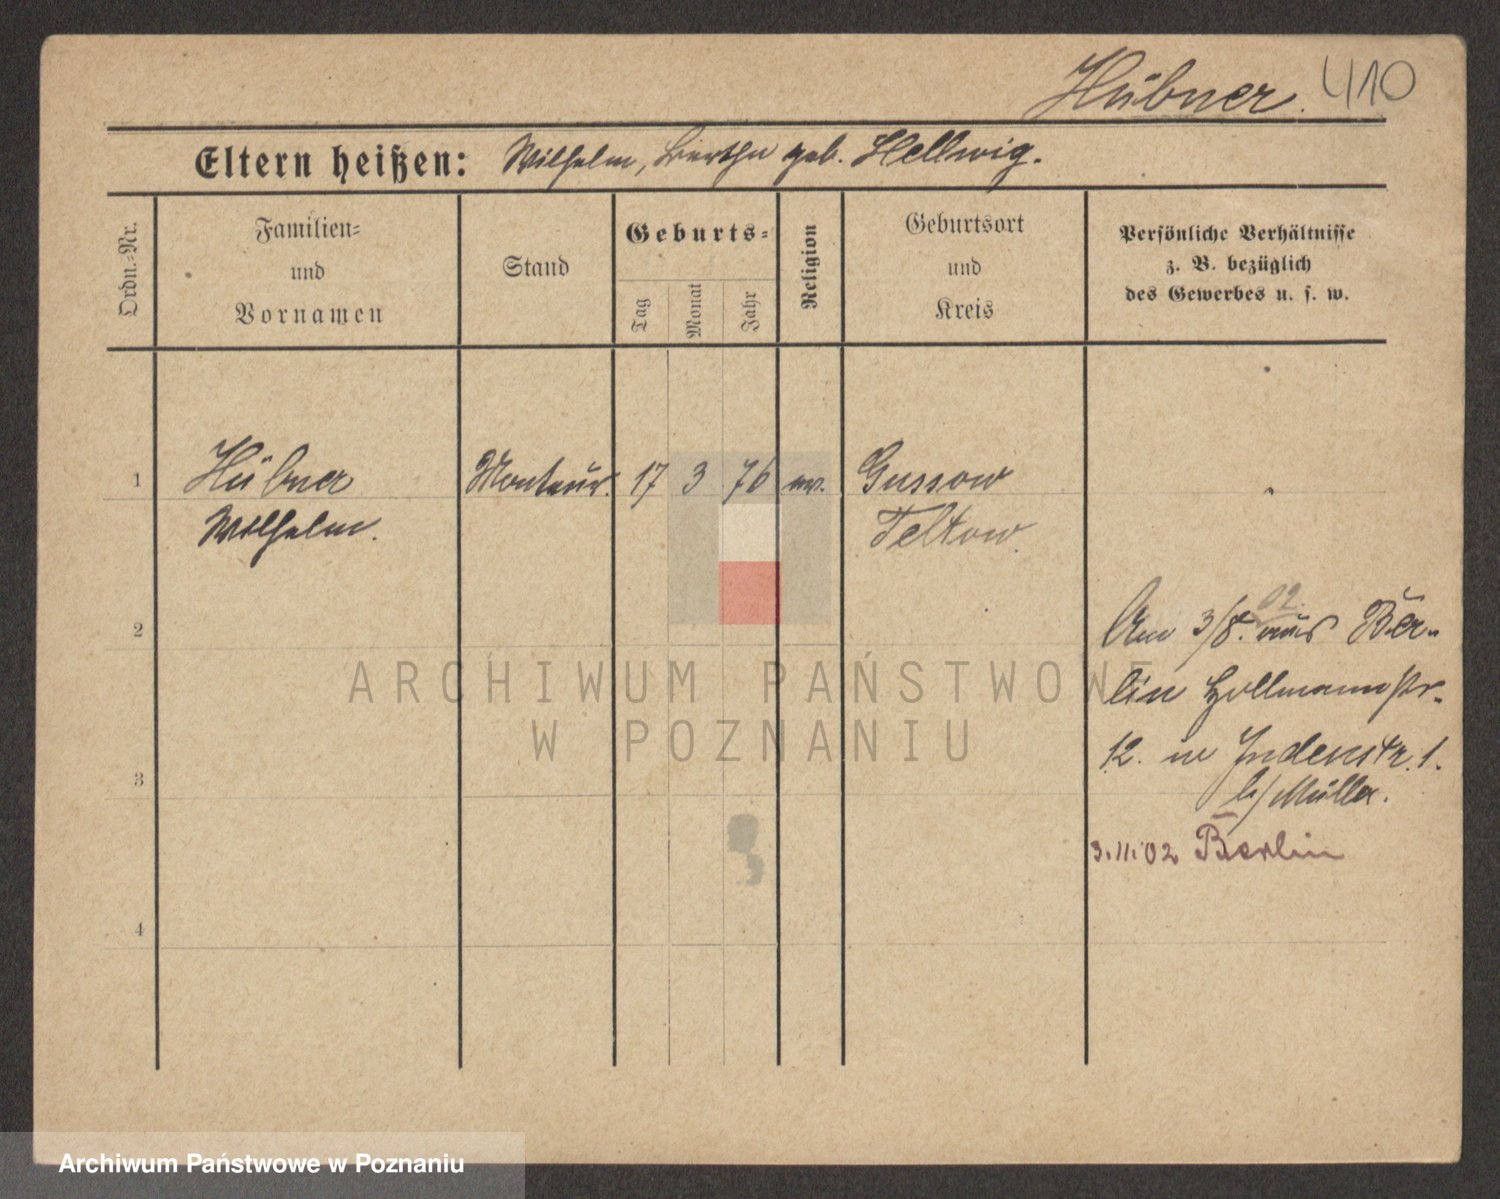 Hübner. 410
Eltern heißen: Wilhelm, Bertha geb. Hellwig.
Ordn.-Nr.
Familien-
und
Vornamen
Stand
Geburts-
Tag
Monat
Jahr
Religion
Geburtsort
und
Kreis
Persönliche Verhältnisse
z. B. bezüglich
des Gewerbes u. s. w.
1 Hübner Monteur. 17 3 76 ev. Gussow
Wilhelm. Teltow.
2
02.
Am 3/8. aus Ber-
lin Hollmannstr.
12. in Judenstr. 1.
b/ Müller.
3
3.11.02 Berlin
4
ARCHIWUM PAŃSTWOWE
W POZNANIU
Archiwum Państwowe w Poznaniu